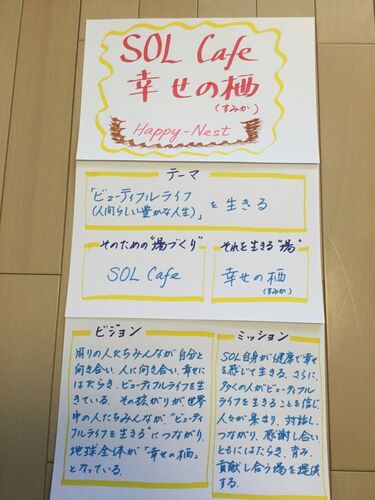 SOL Cafe
幸せの栖
(すみか)
Happy-Nest
テーマ
「ビューティフルライフ
(人間らしい豊かな人生)」を生きる
そのための"場づくり"
SOL Cafe
それを生きる"場"
幸せの栖
(すみか)
ビジョン
周りの人たちみんなが自分と
向き合い、人に向き合い、幸せに
はたらき、ビューティフルライフを生
きている。その拡がりが世界
中の人たちみんなが、"ビューティ
フルライフを生きる"につながり、
地球全体が"幸せの栖"
となっている。
ミッション
SOL自身が健康で幸せ
を感じて生きる。さらに、
多くの人がビューティフル
ライフを生きることを信じ、
人々が集まり、対話し、
つながり、感謝し合い、
ともにはたらき、育み、
貢献し合う場を提供
する。